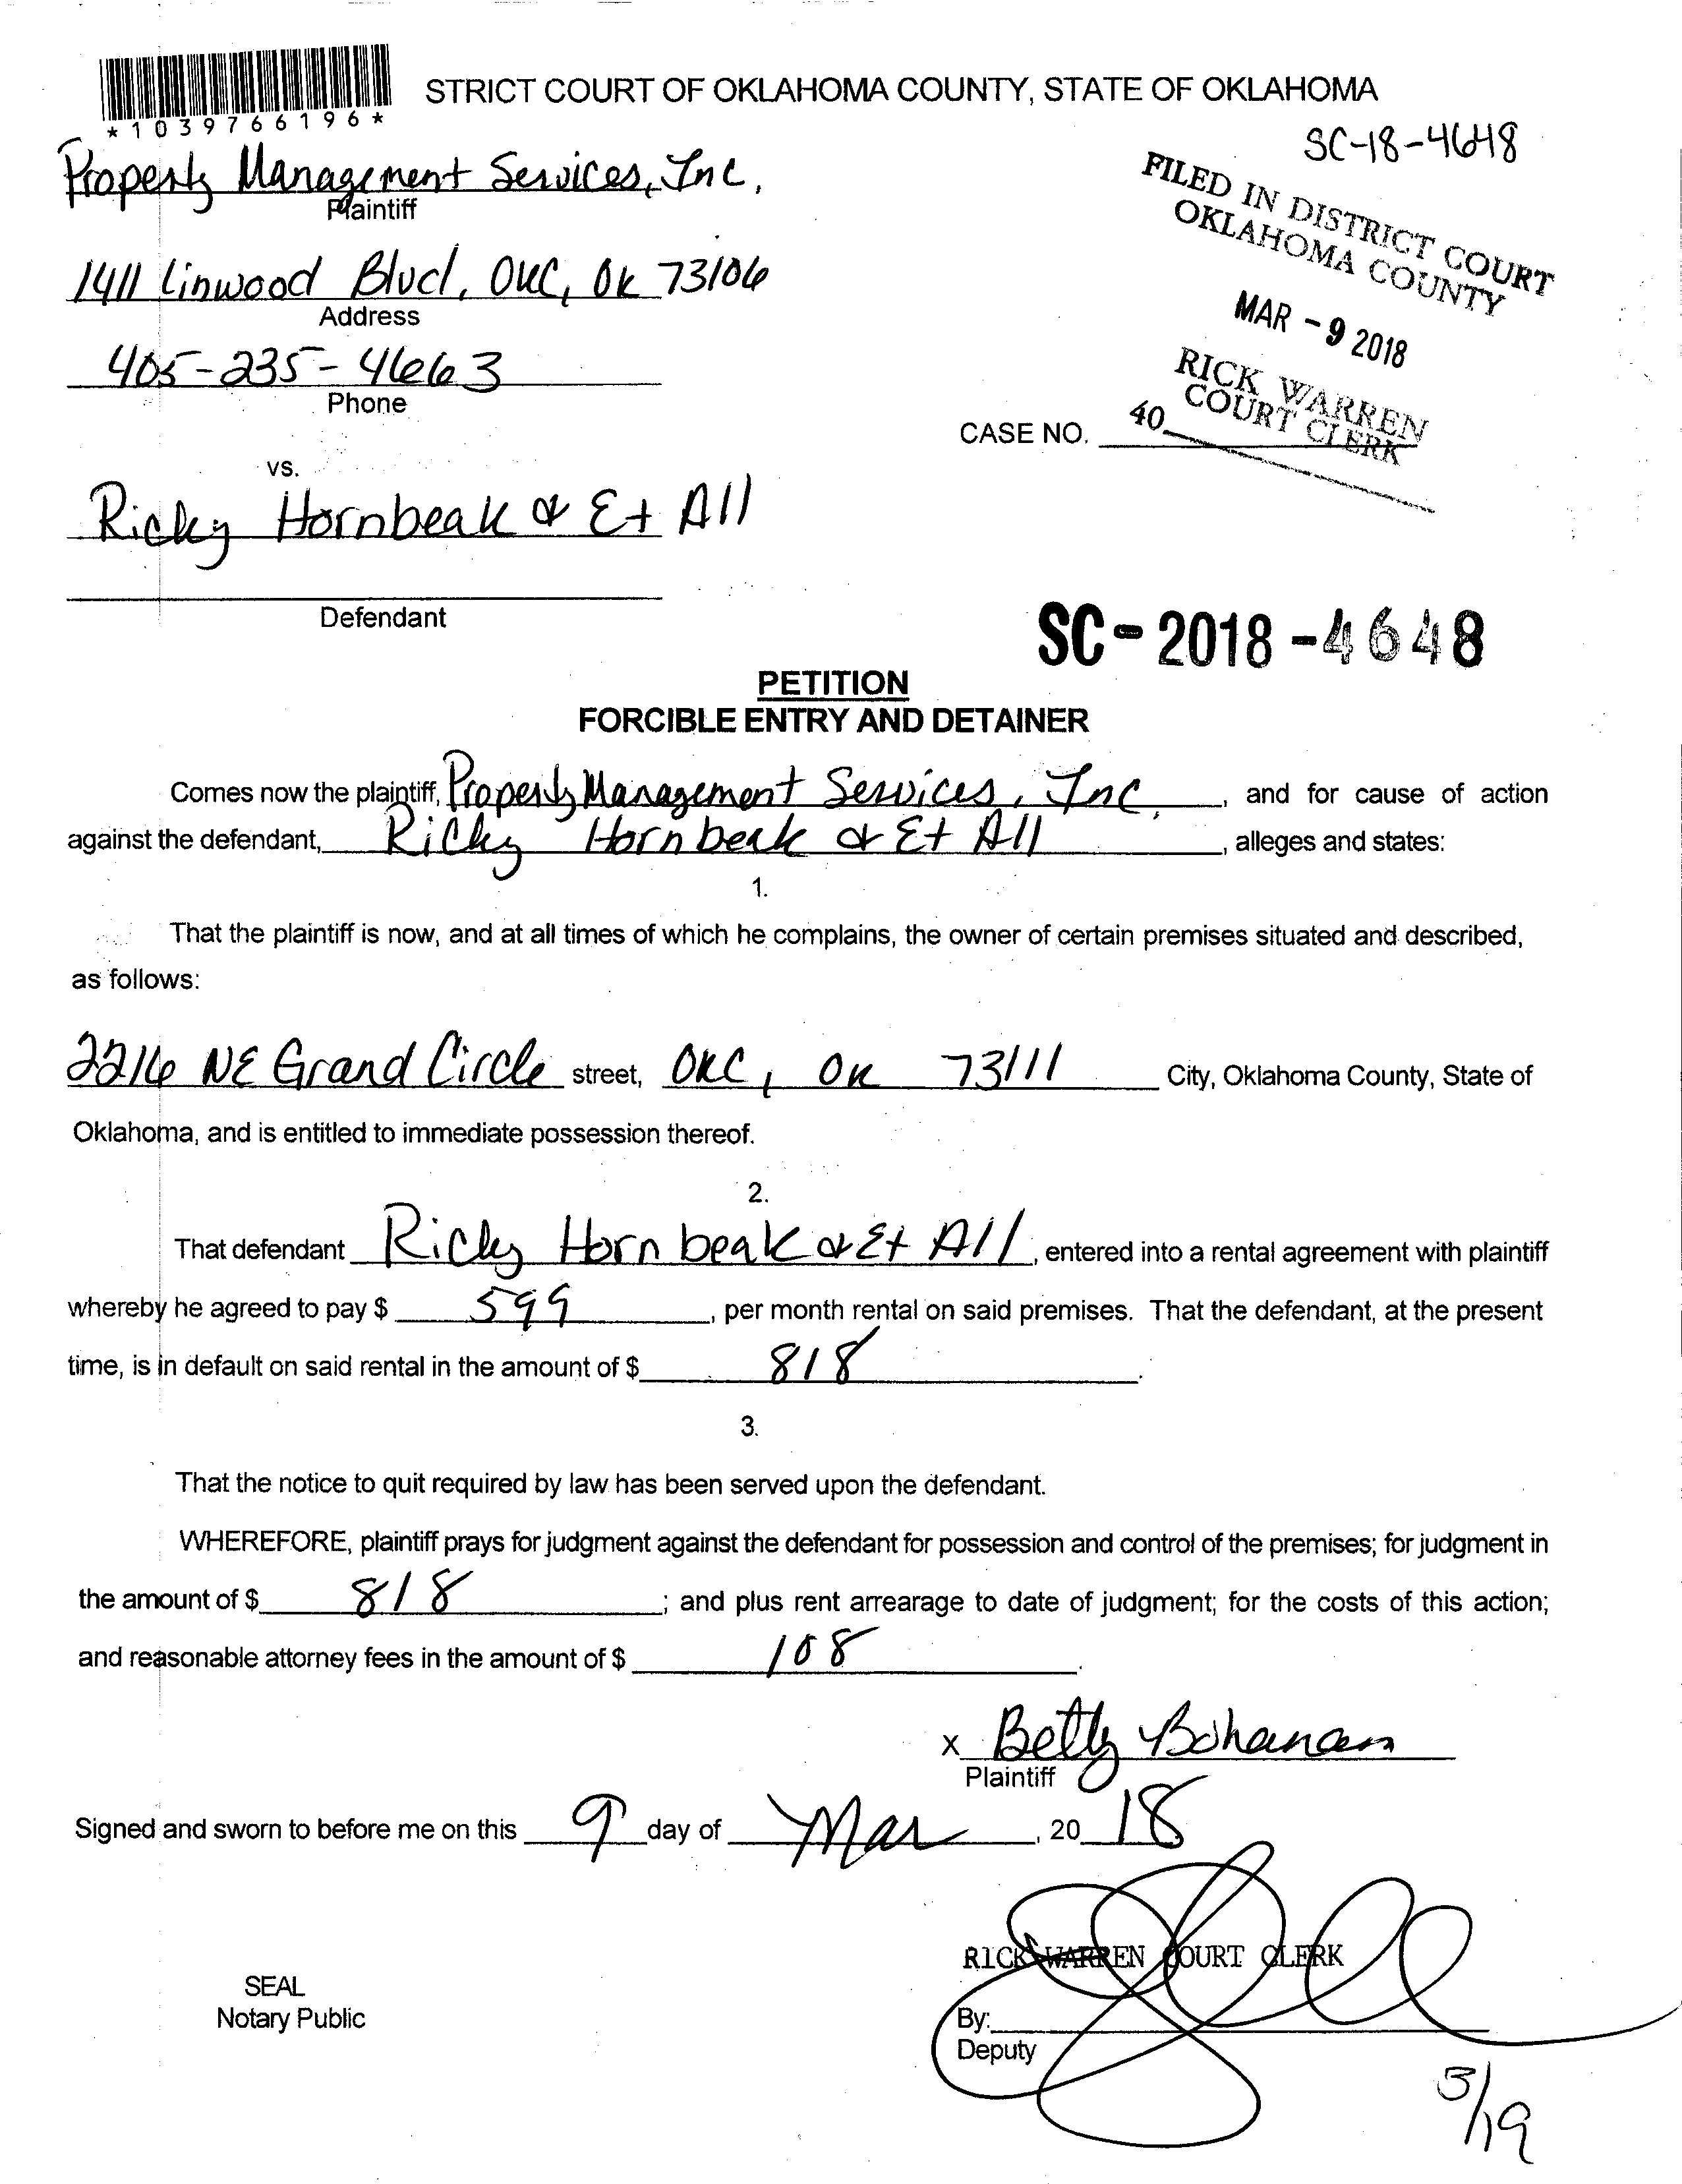 STRICT COURT OF OKLAHOMA COUNTY, STATE OF OKLAHOMA
*1039766196*
SC-18-4648
Property Management Services, Inc.
Plaintiff
FILED IN DISTRICT COURT
OKLAHOMA COUNTY
1411 Linwood Blvd, OKC, OK 73106
Address
MAR - 9 2018
405-235-4663
Phone
RICK WARREN
COURT CLERK
CASE NO.
40
vs.
Ricky Hornbeak & Et All
Defendant
SC - 2018 - 4648
PETITION
FORCIBLE ENTRY AND DETAINER
Comes now the plaintiff, Property Management Services, Inc., and for cause of action
against the defendant, Ricky Hornbeak & Et All, alleges and states:
1.
That the plaintiff is now, and at all times of which he complains, the owner of certain premises situated and described,
as follows:
2216 NE Grand Circle street, OKC, OK 73111 City, Oklahoma County, State of
Oklahoma, and is entitled to immediate possession thereof.
2.
That defendant Ricky Hornbeak & Et All, entered into a rental agreement with plaintiff
whereby he agreed to pay $ 599, per month rental on said premises. That the defendant, at the present
time, is in default on said rental in the amount of $ 818.
3.
That the notice to quit required by law has been served upon the defendant.
WHEREFORE, plaintiff prays for judgment against the defendant for possession and control of the premises; for judgment in
the amount of $ 818; and plus rent arrearage to date of judgment; for the costs of this action;
and reasonable attorney fees in the amount of $ 108.
x Betty Bohanan
Plaintiff
Signed and sworn to before me on this 9 day of Mar, 2018
RICK WARREN COURT CLERK
SEAL
Notary Public
By:
Deputy
3/19